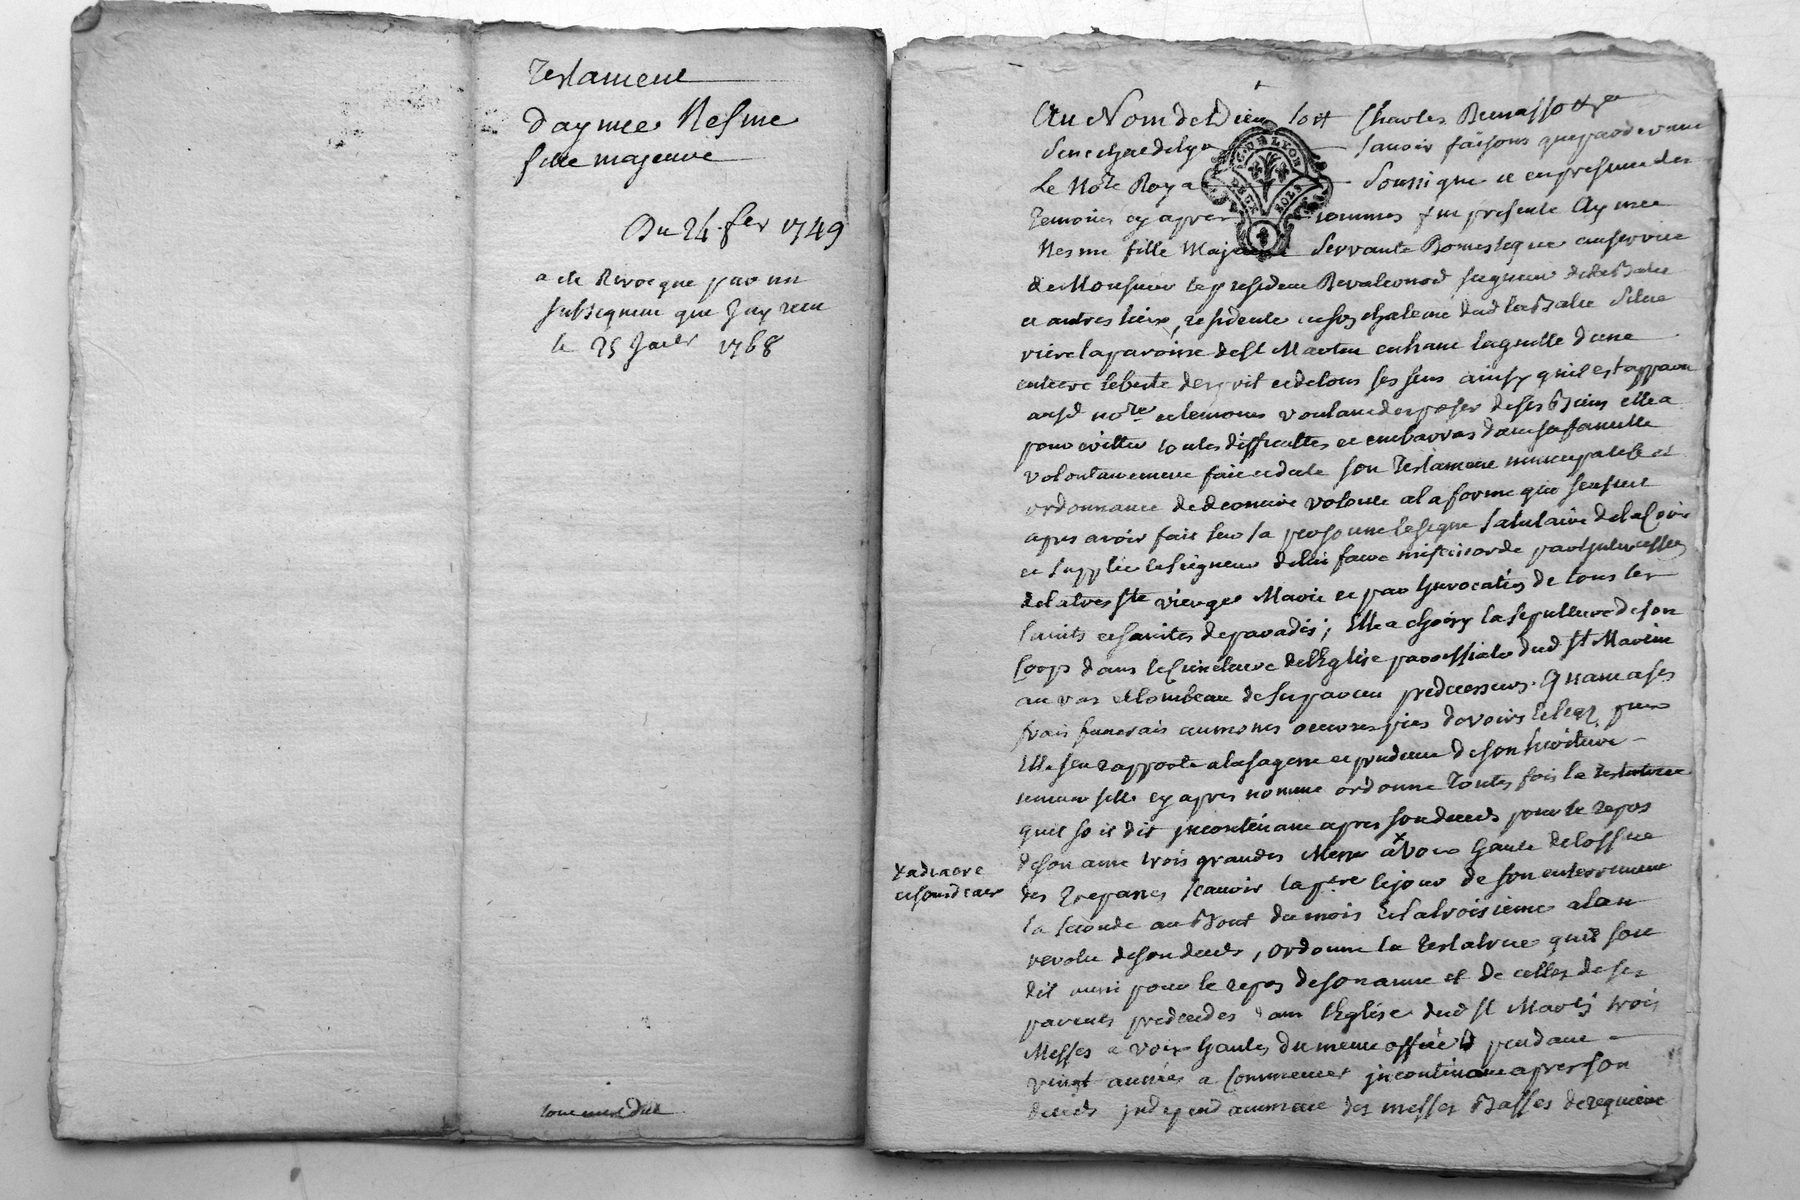 Testament
d'aymee Nesme
fille majeure
Du 24 fer 1749
a ete Revocque par un
subsequent que J'ay receu
le 25 Janer 1768
Au Nom de Dieu soit Charles
Senechal de Lyon scavoir faisons que pardevant
Le Nore Royal soussigne et en presence des
temoins cy apres nommes fut presente Aymee
Nesme fille Majeure servante Domestique au service
de Monsieur le president seigneur de la Balue
et autres lieux, residente au chateau dud la Balue
riere la paroisse de St Martin en haut laquelle d'une
entiere liberte d'esprit et de tous ses sens ainsy qu'il est apparu
aud nore et temoins voulant disposer de ses Biens elle a
pour eviter toutes difficultes et embarras dans sa famille
volontairement fait et dicte son Testament nuncupatif et
ordonnance de derniere volonte a la forme que s'ensuit
apres avoir fait sur sa personne le signe salutaire de la Croix
et supplie le seigneur de luy faire misericorde par l'intercession
de la tres Ste vierge Marie et par Invocation de tous les
saints et saintes de paradis; Elle a choisy la sepulture de son
Corps dans le Cimetiere de l'Eglise parroissiale dud St Martin
au vas et tombeau de ses parens predecesseurs. Quant a ses
frais funerais aumones oeuvres pies devoirs et legs pieux
Elle s'en rapporte a la sagesse et prudence de son heritiere
universelle cy apres nomme ordonne toutes fois la testatrice
quil soit dit incontinant apres son deceds pour le repos
de son ame trois grandes Messes a x voix haute de l'office
x a diacre
et soudiacre
des Trepasses scavoir la pere le jour de son enterrement
la seconde au Bout du mois Et la troisieme a l'an
revolu de son deceds, ordonne la Testatrice quil soit
dit aussi pour le repos de son ame et de celles de ses
parents predecedes dans l'Eglise dud St Martin trois
Messes a voix hautes du meme office pendant
vingt annees a commencer incontinant apres son
deceds independamment des messes Basses de requiem